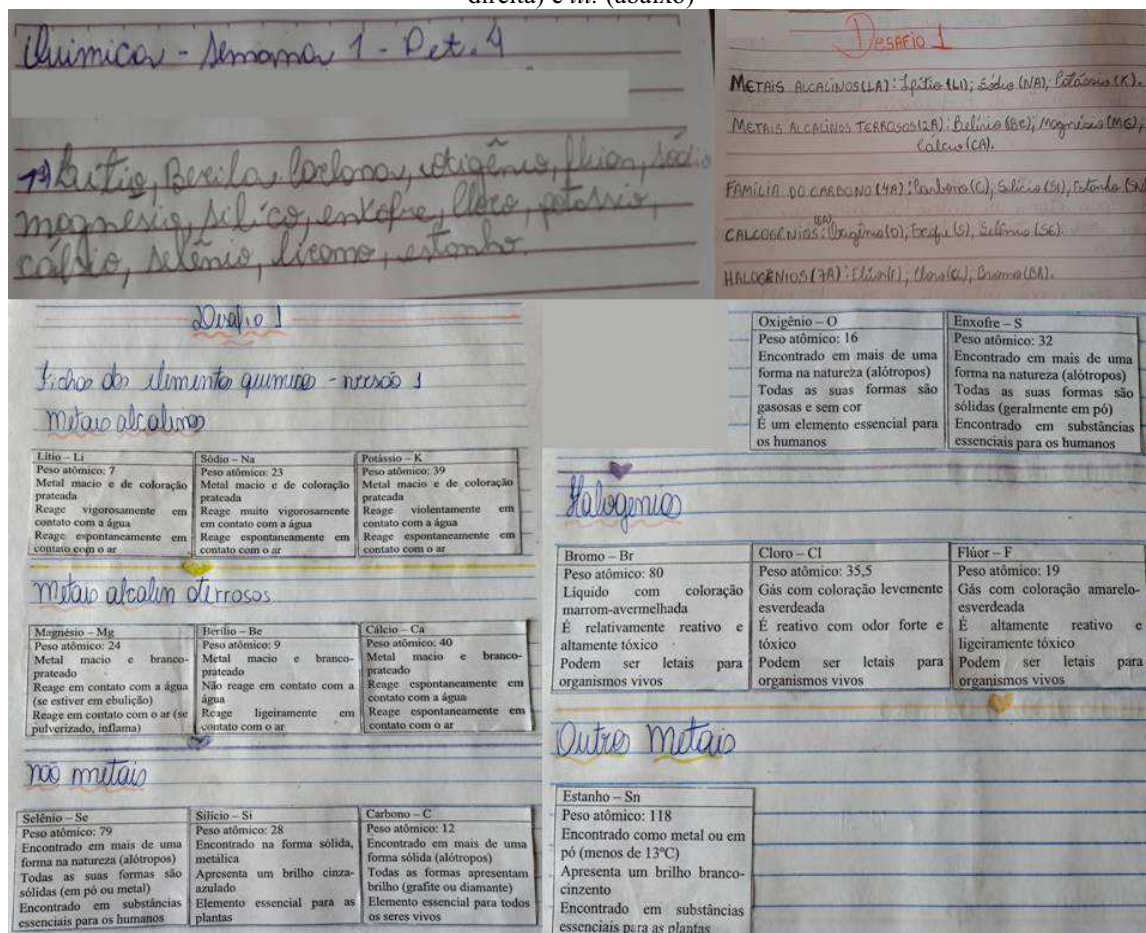 direita) e iii. (abaixo)
Química - Semana 1 - Pet. 4
1ª) Lítio, Berilo, Carbono, oxigênio, flúor, sódio
magnésio, silíco, enxofre, Cloro, potássio,
cálcio, selênio, estanho.
Desafio 1
Metais alcalinos (1A): Lítio (Li); Sódio (NA); Potássio (K).
Metais alcalinos terrosos (2A): Berílio (Be); Magnésio (MG);
Cálcio (CA).
Família do carbono (4A): Carbono (C), Silício (Si), Estanho (SN)
Calcogênios: (6A) Oxigênio (O), (S), Selênio (SE).
Halogênios (7A): Flúor (F); Cloro (CL), Bromo (BR).
Desafio 1
Fichas dos elementos químicos - versão 1
Metais alcalinos
Lítio – Li
Peso atômico: 7
Metal macio e de coloração
prateada
Reage vigorosamente em
contato com a água
Reage espontaneamente em
contato com o ar
Sódio – Na
Peso atômico: 23
Metal macio e de coloração
prateada
Reage muito vigorosamente
em contato com a água
Reage espontaneamente em
contato com o ar
Potássio – K
Peso atômico: 39
Metal macio e de coloração
prateada
Reage violentamente em
contato com a água
Reage espontaneamente em
contato com o ar
Metais alcalin oterrosos
Magnésio – Mg
Peso atômico: 24
Metal macio e branco-
prateado
Reage em contato com a água
(se estiver em ebulição)
Reage em contato com o ar (se
pulverizado, inflama)
Berílio – Be
Peso atômico: 9
Metal macio e branco-
prateado
Não reage em contato com a
água
Reage ligeiramente em
contato com o ar
Cálcio – Ca
Peso atômico: 40
Metal macio e branco-
prateado
Reage espontaneamente em
contato com a água
Reage espontaneamente em
contato com o ar
não metais
Selênio – Se
Peso atômico: 79
Encontrado em mais de uma
forma na natureza (alótropos)
Todas as suas formas são
sólidas (em pó ou metal)
Encontrado em substâncias
essenciais para os humanos
Silício – Si
Peso atômico: 28
Encontrado na forma sólida,
metálica
Apresenta um brilho cinza-
azulado
Elemento essencial para as
plantas
Carbono – C
Peso atômico: 12
Encontrado em mais de uma
forma sólida (alótropos)
Todas as formas apresentam
brilho (grafite ou diamante)
Elemento essencial para todos
os seres vivos
Oxigênio – O
Peso atômico: 16
Encontrado em mais de uma
forma na natureza (alótropos)
Todas as suas formas são
gasosas e sem cor
É um elemento essencial para
os humanos
Enxofre – S
Peso atômico: 32
Encontrado em mais de uma
forma na natureza (alótropos)
Todas as suas formas são
sólidas (geralmente em pó)
Encontrado em substâncias
essenciais para os humanos
Halogenios
Bromo – Br
Peso atômico: 80
Líquido com coloração
marrom-avermelhada
É relativamente reativo e
altamente tóxico
Podem ser letais para
organismos vivos
Cloro – Cl
Peso atômico: 35,5
Gás com coloração levemente
esverdeada
É reativo com odor forte e
tóxico
Podem ser letais para
organismos vivos
Flúor – F
Peso atômico: 19
Gás com coloração amarelo-
esverdeada
É altamente reativo e
ligeiramente tóxico
Podem ser letais para
organismos vivos
Outros Metais
Estanho – Sn
Peso atômico: 118
Encontrado como metal ou em
pó (menos de 13ºC)
Apresenta um brilho branco-
cinzento
Encontrado em substâncias
essenciais para as plantas